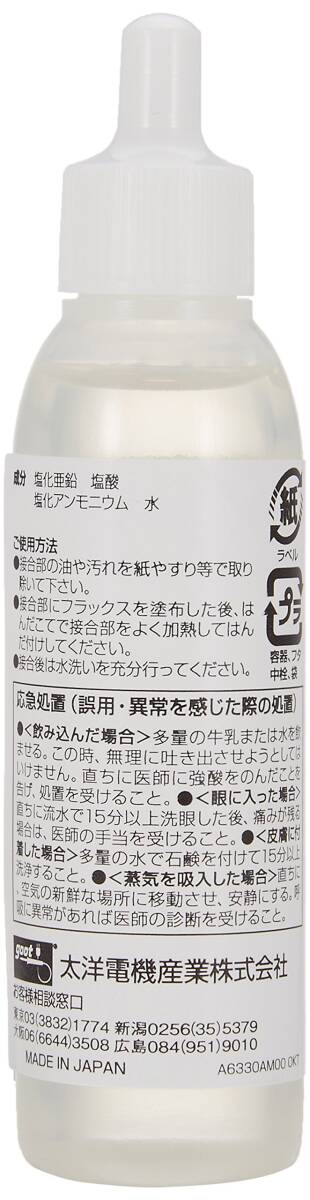 成分 塩化亜鉛 塩酸
塩化アンモニウム 水
紙
ラベル
プラ
容器、フタ
中栓、袋
ご使用方法
●接合部の油や汚れを紙やすり等で取り
除いて下さい。
●接合部にフラックスを塗布した後、は
んだごてで接合部をよく加熱してはん
だ付けしてください。
●接合後は水洗いを充分行ってください。
応急処置(誤用・異常を感じた際の処置)
●<飲み込んだ場合>多量の牛乳または水を飲
ませる。この時、無理に吐き出させようとしては
いけません。直ちに医師に強酸をのんだことを
告げ、処置を受けること。●<眼に入った場合>
直ちに流水で15分以上洗眼した後、痛みが残る
場合は、医師の手当を受けること。●<皮膚に付
着した場合>多量の水で石鹸を付けて15分以上
洗浄すること。●<蒸気を吸入した場合>直ちに
、空気の新鮮な場所に移動させ、安静にする。呼
吸に異常があれば医師の診断を受けること。
goot 太洋電機産業株式会社
お客様相談窓口
東京03(3832)1774 新潟0256(35)5379
大阪06(6644)3508 広島084(951)9010
MADE IN JAPAN A6330AM00 0KT